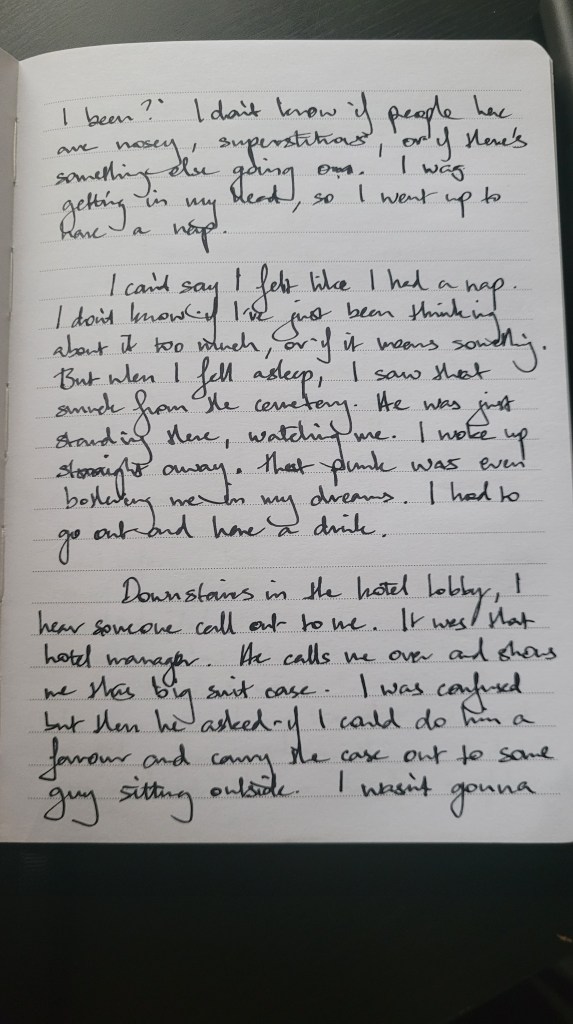 I been?" I don't know if people here
are nosey, superstitious, or if there's
something else going on. I was
getting in my head, so I went up to
have a nap.
I can't say I felt like I had a nap.
I don't know if I've just been thinking
about it too much, or if it means something.
But when I fell asleep, I saw that
from the cemetery. He was just
standing there, watching me. I woke up
straight away. That punk was even
bothering me in my dreams. I had to
go out and have a drink.
Downstairs in the hotel lobby, I
hear someone call out to me. It was that
hotel manager. He calls me over and shows
me this big suit case. I was confused
but then he asked if I could do him a
favour and carry the case out to some
guy sitting outside. I wasn't gonna